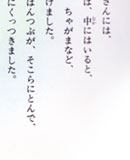 さんには、
は、中にはいると、
ちゃがまなど、
けました。
はんつぶが、そこらにとんで、
にくっつきました。